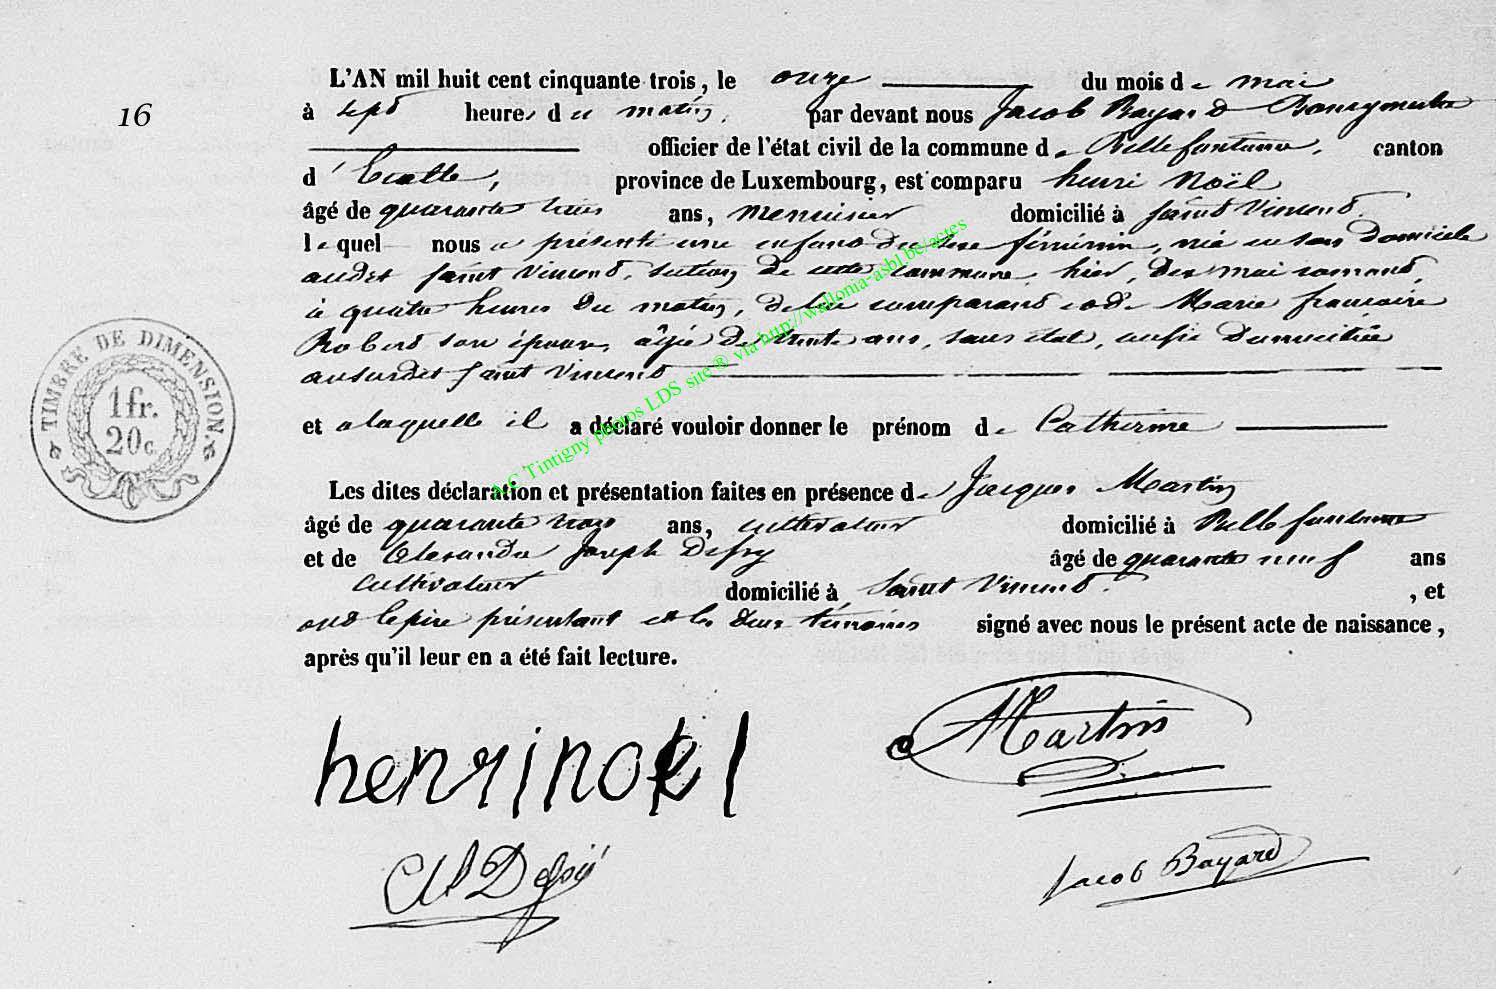 16
L'AN mil huit cent cinquante trois, le onze du mois de mai
à sept heures du matin, par devant nous Jacob Bayard Bourgmestre
officier de l'état civil de la commune de Bellefontaine, canton
d'Etalle, province de Luxembourg, est comparu henri Noël
âgé de quarante trois ans, menuisier domicilié à Saint Vincent
lequel nous a présenté une enfant du sexe féminin, née en son domicile
audit Saint Vincent, section de cette commune, hier, dix mai courant,
à quatre heures du matin, de lui comparant et de Marie françoise
Robert son épouse, âgée de trente ans, sans état, aussi domiciliée
au susdit Saint Vincent
et a laquelle il a déclaré vouloir donner le prénom de Catherine
Les dites déclaration et présentation faites en présence de Jacques Martin
âgé de quarante ans, cultivateur domicilié à Bellefontaine
et de Alexandre Joseph Defoy âgé de quarante neuf ans
cultivateur domicilié à Saint Vincent, et
ont le père présentant et les deux témoins signé avec nous le présent acte de naissance,
après qu'il leur en a été fait lecture.
henri noel
Martin
Jacob Bayard
TIMBRE DE DIMENSION.
1 fr.
20 c.
A.C Tintigny photos LDS site ® via http://wallonia-asbl.be/actes